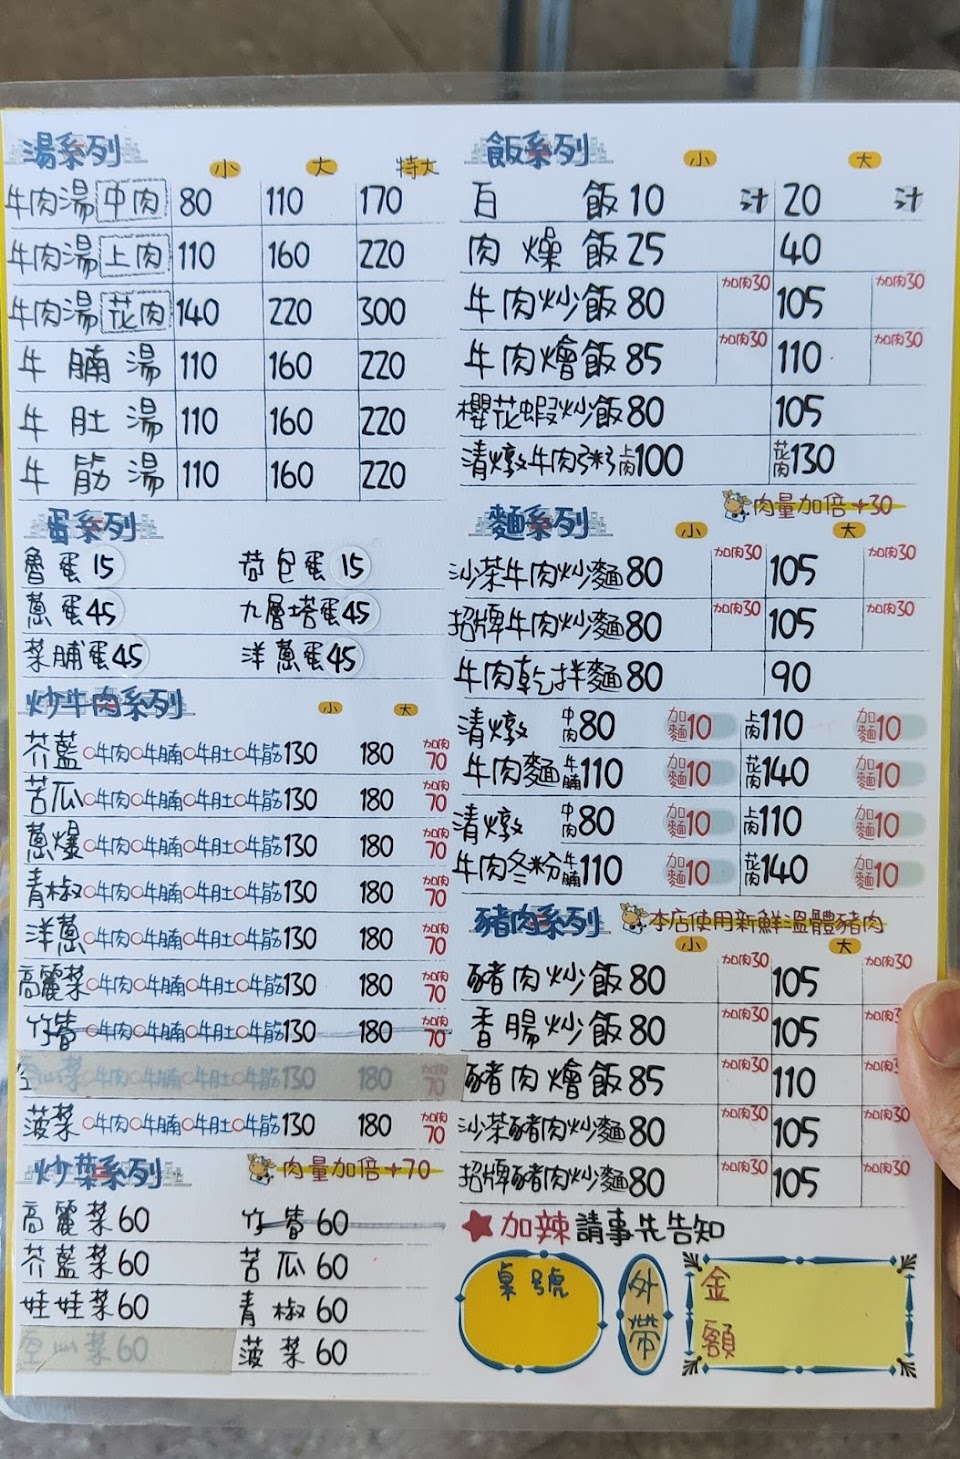 湯系列
小 大 特大
牛肉湯 中肉 80 110 170
牛肉湯 上肉 110 160 220
牛肉湯 花肉 140 220 300
牛腩湯 110 160 220
牛肚湯 110 160 220
牛筋湯 110 160 220
蛋系列
魯蛋 15 荷包蛋 15
蔥蛋 45 九層塔蛋 45
菜脯蛋 45 洋蔥蛋 45
炒牛肉系列 小 大
芥藍 ○牛肉○牛腩○牛肚○牛筋 130 180 加肉70
苦瓜 ○牛肉○牛腩○牛肚○牛筋 130 180 加肉70
蔥爆 ○牛肉○牛腩○牛肚○牛筋 130 180 加肉70
青椒 ○牛肉○牛腩○牛肚○牛筋 130 180 加肉70
洋蔥 ○牛肉○牛腩○牛肚○牛筋 130 180 加肉70
高麗菜 ○牛肉○牛腩○牛肚○牛筋 130 180 加肉70
竹筍 ○牛肉○牛腩○牛肚○牛筋 130 180 加肉70
空心菜 ○牛肉○牛腩○牛肚○牛筋 130 180 加肉70
菠菜 ○牛肉○牛腩○牛肚○牛筋 130 180 加肉70
炒菜系列 肉量加倍+70
高麗菜 60 竹筍 60
芥藍菜 60 苦瓜 60
娃娃菜 60 青椒 60
空心菜 60 菠菜 60
飯系列 小 大
白飯 10 汁 20 汁
肉燥飯 25 40
牛肉炒飯 80 加肉30 105 加肉30
牛肉燴飯 85 加肉30 110 加肉30
櫻花蝦炒飯 80 105
清燉牛肉粥 上肉 100 花肉 130
麵系列 肉量加倍+30
小 大
沙茶牛肉炒麵 80 加肉30 105 加肉30
招牌牛肉炒麵 80 加肉30 105 加肉30
牛肉乾拌麵 80 90
清燉 中肉 80 加麵10 上肉 110 加麵10
牛肉麵 牛腩 110 加麵10 花肉 140 加麵10
清燉 中肉 80 加麵10 上肉 110 加麵10
牛肉冬粉 牛腩 110 加麵10 花肉 140 加麵10
豬肉系列 本店使用新鮮溫體豬肉
小 大
豬肉炒飯 80 加肉30 105 加肉30
香腸炒飯 80 加肉30 105 加肉3
豬肉燴飯 85 加肉30 110 加肉30
沙茶豬肉炒麵 80 加肉30 105 加肉30
招牌豬肉炒麵 80 加肉30 105 加肉30
★加辣請事先告知
桌號 外帶 金額